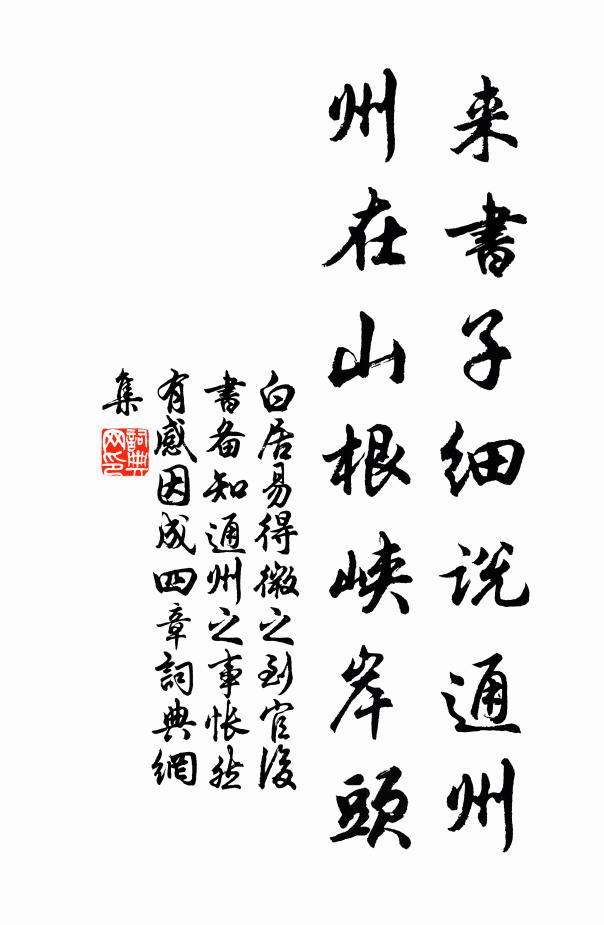 来書子细说通州
州在山根峡岸頭
白居易得微之到官後
書备知通州之事怅然
有感因成四章詞典網
集
詞典网印